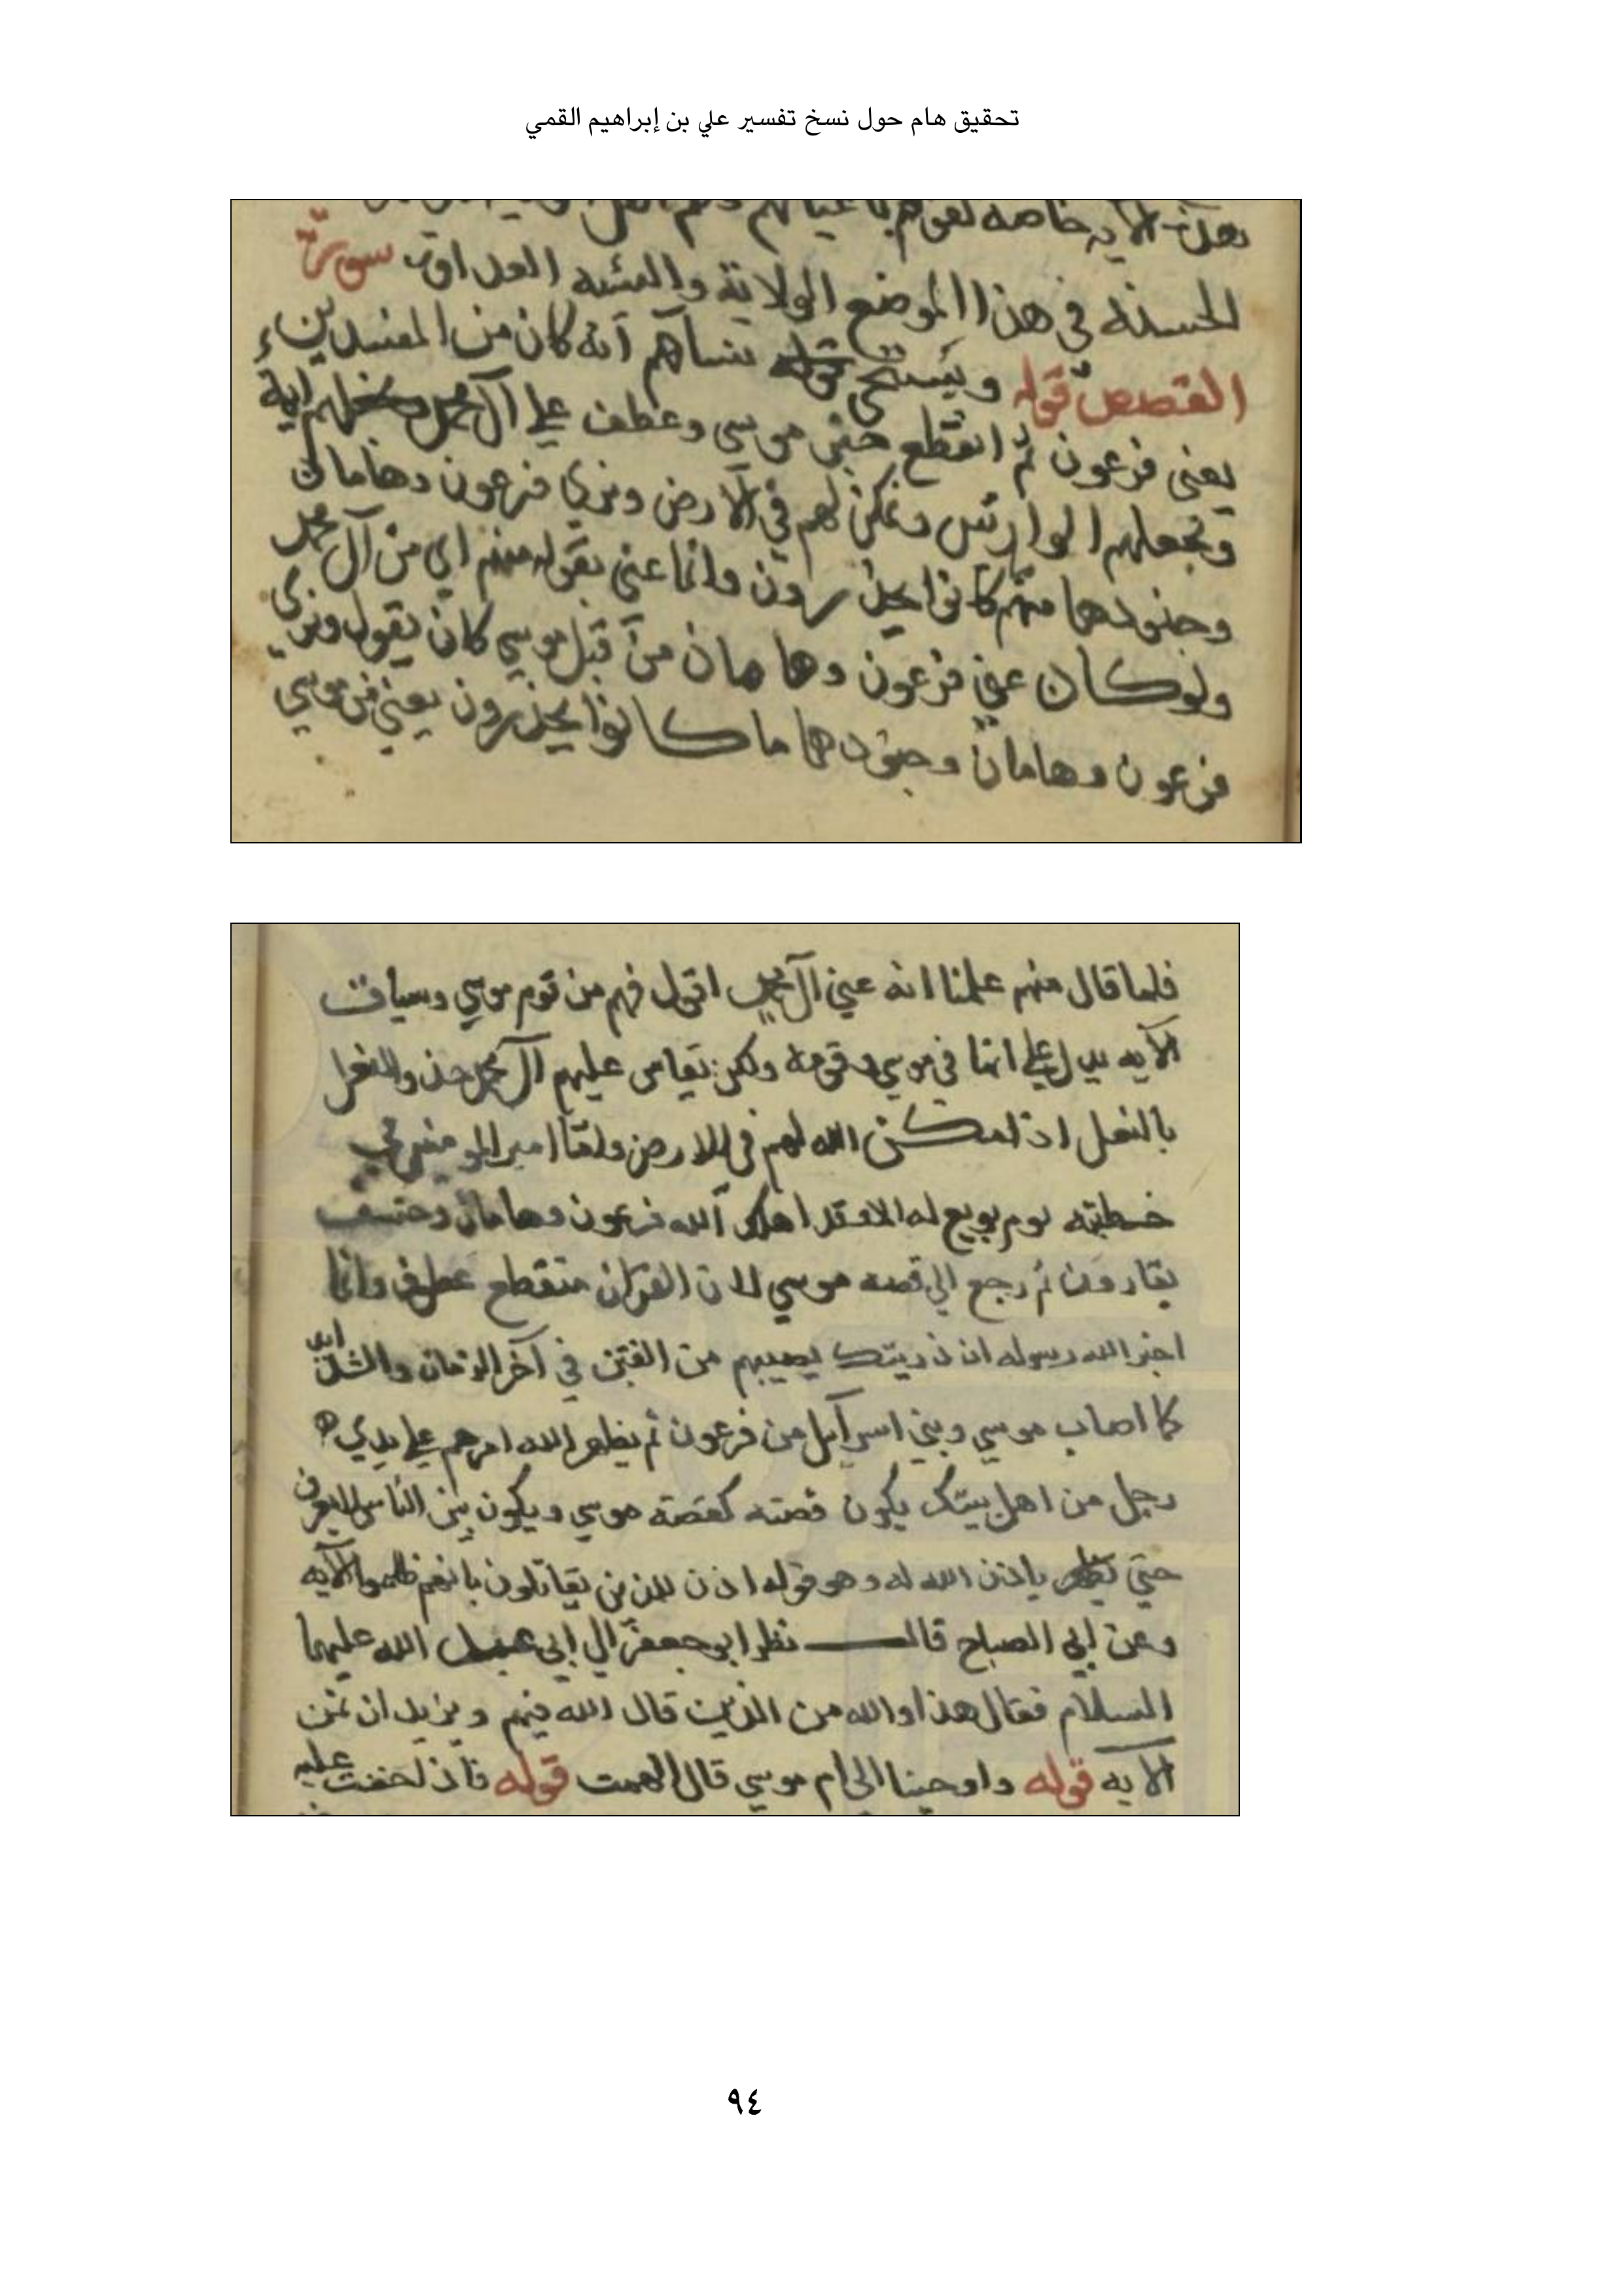 تحقيق هام حول نسخ تفسير علي بن إبراهيم القمي
الآيه خاصه
الحسنه في هذا الموضع الولاية والسئيه العداوة سورة
القصص قوله ويستحي نسآهم آنه كان من المفسدين
يعني فرعون ثم انقطع خبر موسي وعطف علي آل محمد
ونجعلهم الوارثين ونمكن لهم في الارض ونري فرعون وهامان
وجنودهما منهم ما كانوا يحذرون وانما عني بقوله منهم اي من آل محمد
ولو كان عني فرعون وهامان من قبل موسي كان يقول ونري
فرعون وهامان وجنودهما ما كانوا يحذرون يعني من موسي
فلما قال منهم علمنا انه عني آل محمد اقول فهم من قوم موسي وسياق
الآيه يدل علي انها في موسي وقومه ولكن يقاس عليهم آل محمد
بالنعل اذ لم يمكن الله لهم في الارض ولقول امير المومنين في
خطبته يوم بويع له الا وقد اهلك الله فرعون وهامان وخسف
بقارون ثم رجع الي قصه موسي لان القرآن منقطع عطوف وانما
اخبر الله رسوله ان ذريتك يصيبهم من الفتن في آخر الزمان والشدائد
كما اصاب موسي وبني اسرآيل من فرعون ثم يظهر الله امرهم علي يدي
رجل من اهل بيتك يكون قصته كقصة موسي ويكون بين الناس لا يعرف
حتي يظهر باذن الله له وهو قوله اذن للذين يقاتلون بانهم ظلموا الآيه
وعن ابي الصباح قال نظر ابو جعفر الي ابي عبد الله عليهما
السلام فقال هذا والله من الذين قال الله فيهم ونريد ان نمن
الآيه قوله واوحينا الي ام موسي قال الهمت قوله فاذ لخفت عليه
٩٤